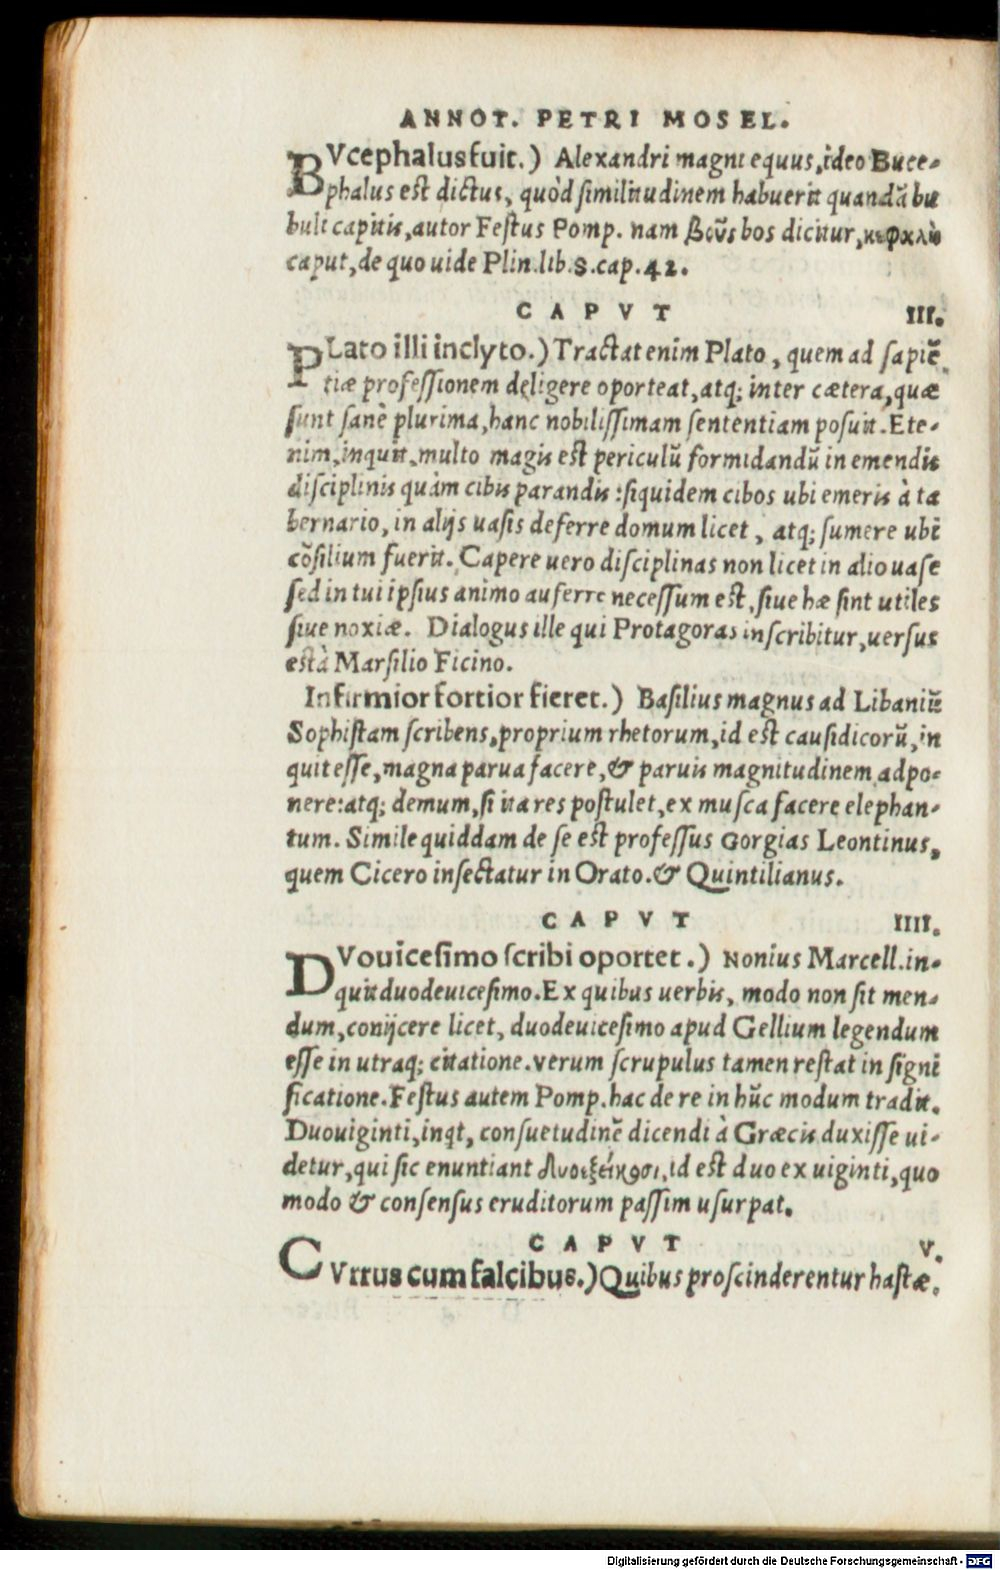 ANNOT. PETRI MOSEL.
BVcephalus fuit.) Alexandri magni equus, ideo Buce-
phalus est dictus, quòd similitudinem habuerit quandã bu
buli capitis, autor Festus Pomp. nam βοῦς bos dicitur, κεφαλὴ
caput, de quo uide Plin. lib. 8. cap. 42.
CAPVT III.
PLato illi inclyto.) Tractat enim Plato, quem ad sapiẽ
tiæ professionem deligere oporteat, atq; inter cætera, quæ
sunt sanè plurima, hanc nobilissimam sententiam posuit. Ete-
nim, inquit, multo magis est periculũ formidandũ in emendis
disciplinis quàm cibis parandis : siquidem cibos ubi emeris à ta
bernario, in alijs uasis deferre domum licet, atq; sumere ubi
cõsilium fuerit. Capere uero disciplinas non licet in alio uase
sed in tui ipsius animo auferre necessum est, siue hæ sint utiles
siue noxiæ. Dialogus ille qui Protagoras inscribitur, uersus
est à Marsilio Ficino.
Infirmior fortior fieret.) Basilius magnus ad Libaniũ
Sophistam scribens, proprium rhetorum, id est causidicorũ, in
quit esse, magna parua facere, & paruis magnitudinem adpo-
nere: atq; demum, si ita res postulet, ex musca facere elephan-
tum. Simile quiddam de se est professus Gorgias Leontinus,
quem Cicero insectatur in Orato. & Quintilianus.
CAPVT IIII.
DVouicesimo scribi oportet.) Nonius Marcell. in-
quit duodeuicesimo. Ex quibus uerbis, modo non sit men-
dum, conijcere licet, duodeuicesimo apud Gellium legendum
esse in utraq; citatione. verum scrupulus tamen restat in signi
ficatione. Festus autem Pomp. hac de re in hũc modum tradit.
Duouiginti, inqt, consuetudinẽ dicendi à Græcis duxisse ui-
detur, qui sic enuntiant Δυοεξείκοσι, id est duo ex uiginti, quo
modo & consensus eruditorum passim usurpat.
CAPVT V.
CVrrus cum falcibus.) Quibus proscinderentur hastæ.
Digitalisierung gefördert durch die Deutsche Forschungsgemeinschaft - DFG